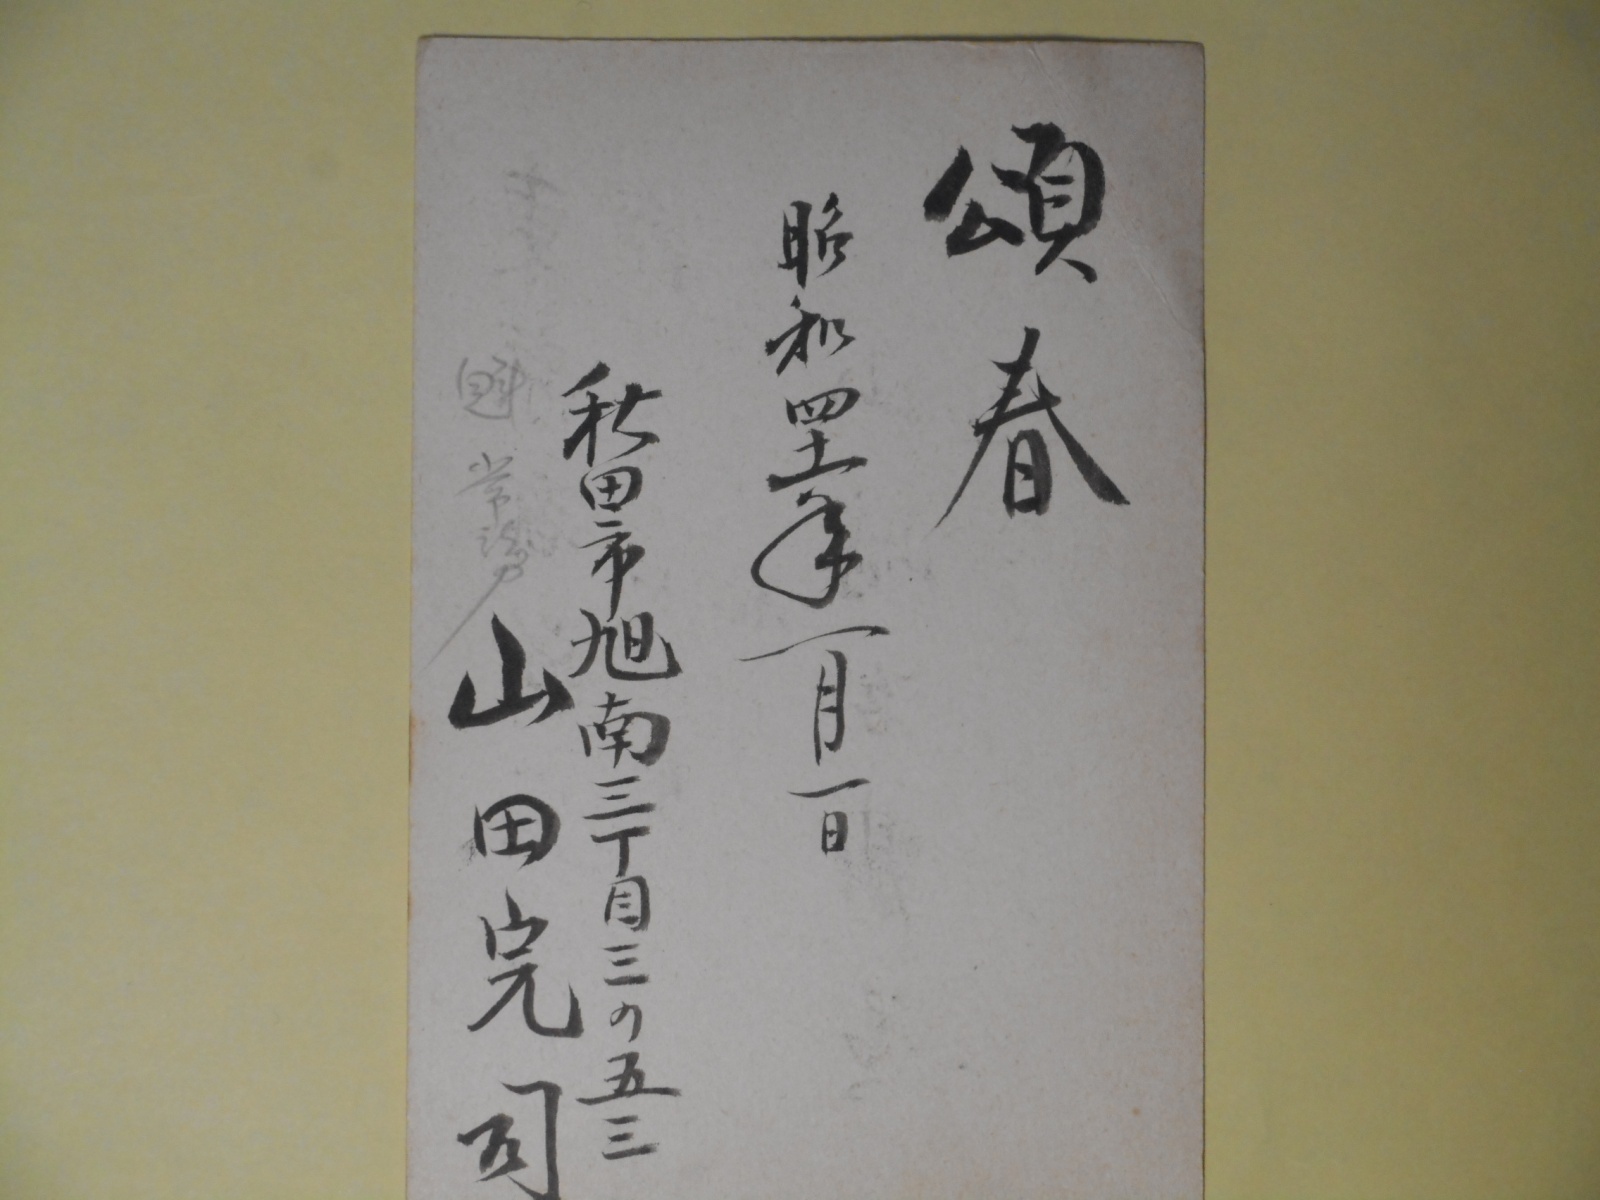 頌春
昭和四十一年一月一日
秋田市旭南三丁目三の五三
山田完司